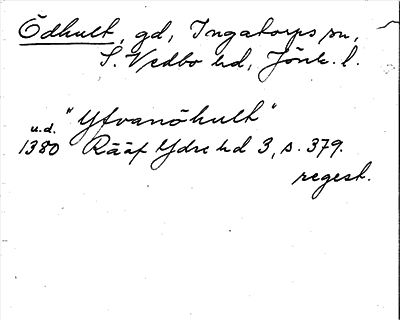 Ödhult, gd, Ingatorps sn,
S. Vedbo hd, Jönk. l.
"Yfvanöhult"
u.d.
1380 Rääf Ydre hd 3, s. 379.
regest.